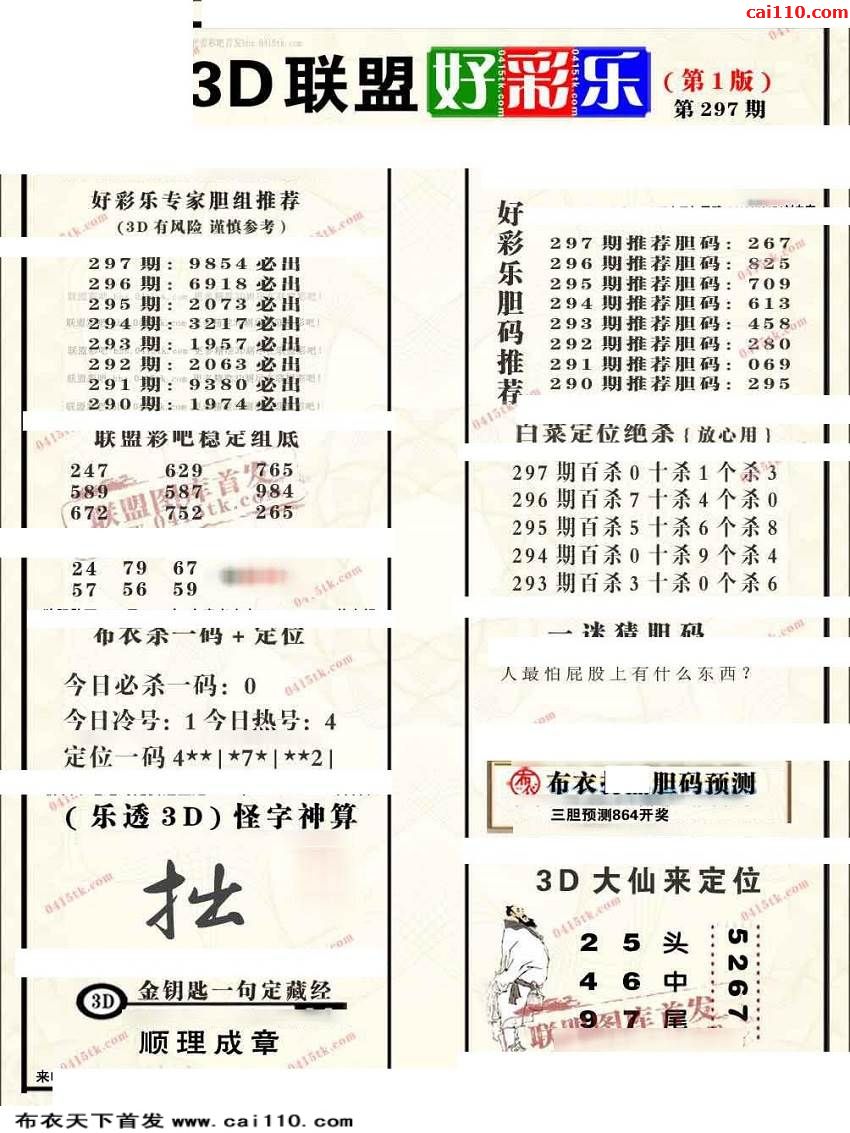 cai110.com
3D联盟好彩乐
(第1版)
第297期
好彩乐专家胆组推荐
(3D有风险 谨慎参考)
297期: 9854必出
296期: 6918必出
295期: 2073必出
294期: 3217必出
293期: 1957必出
292期: 2063必出
291期: 9380必出
290期: 1974必出
联盟彩吧稳定组底
247 629 765
589 587 984
672 752 265
24 79 67
57 56 59
布衣杀一码+定位
今日必杀一码: 0
今日冷号: 1 今日热号: 4
定位一码 4**|*7*|**2|
(乐透3D)怪字神算
拙
3D 金钥匙一句定藏经
顺理成章
好彩乐胆码推荐
297期推荐胆码: 267
296期推荐胆码: 825
295期推荐胆码: 709
294期推荐胆码: 613
293期推荐胆码: 458
292期推荐胆码: 280
291期推荐胆码: 069
290期推荐胆码: 295
白菜定位绝杀{放心用}
297期百杀0十杀1个杀3
296期百杀7十杀4个杀0
295期百杀5十杀6个杀8
294期百杀0十杀9个杀4
293期百杀3十杀0个杀6
一谜猜胆码
人最怕屁股上有什么东西?
布衣 胆码预测
三胆预测864开奖
3D大仙来定位
2 5 头
4 6 中
9 7 尾
5267
联盟图库首发
0415tk.com
布衣天下首发 www.cai110.com